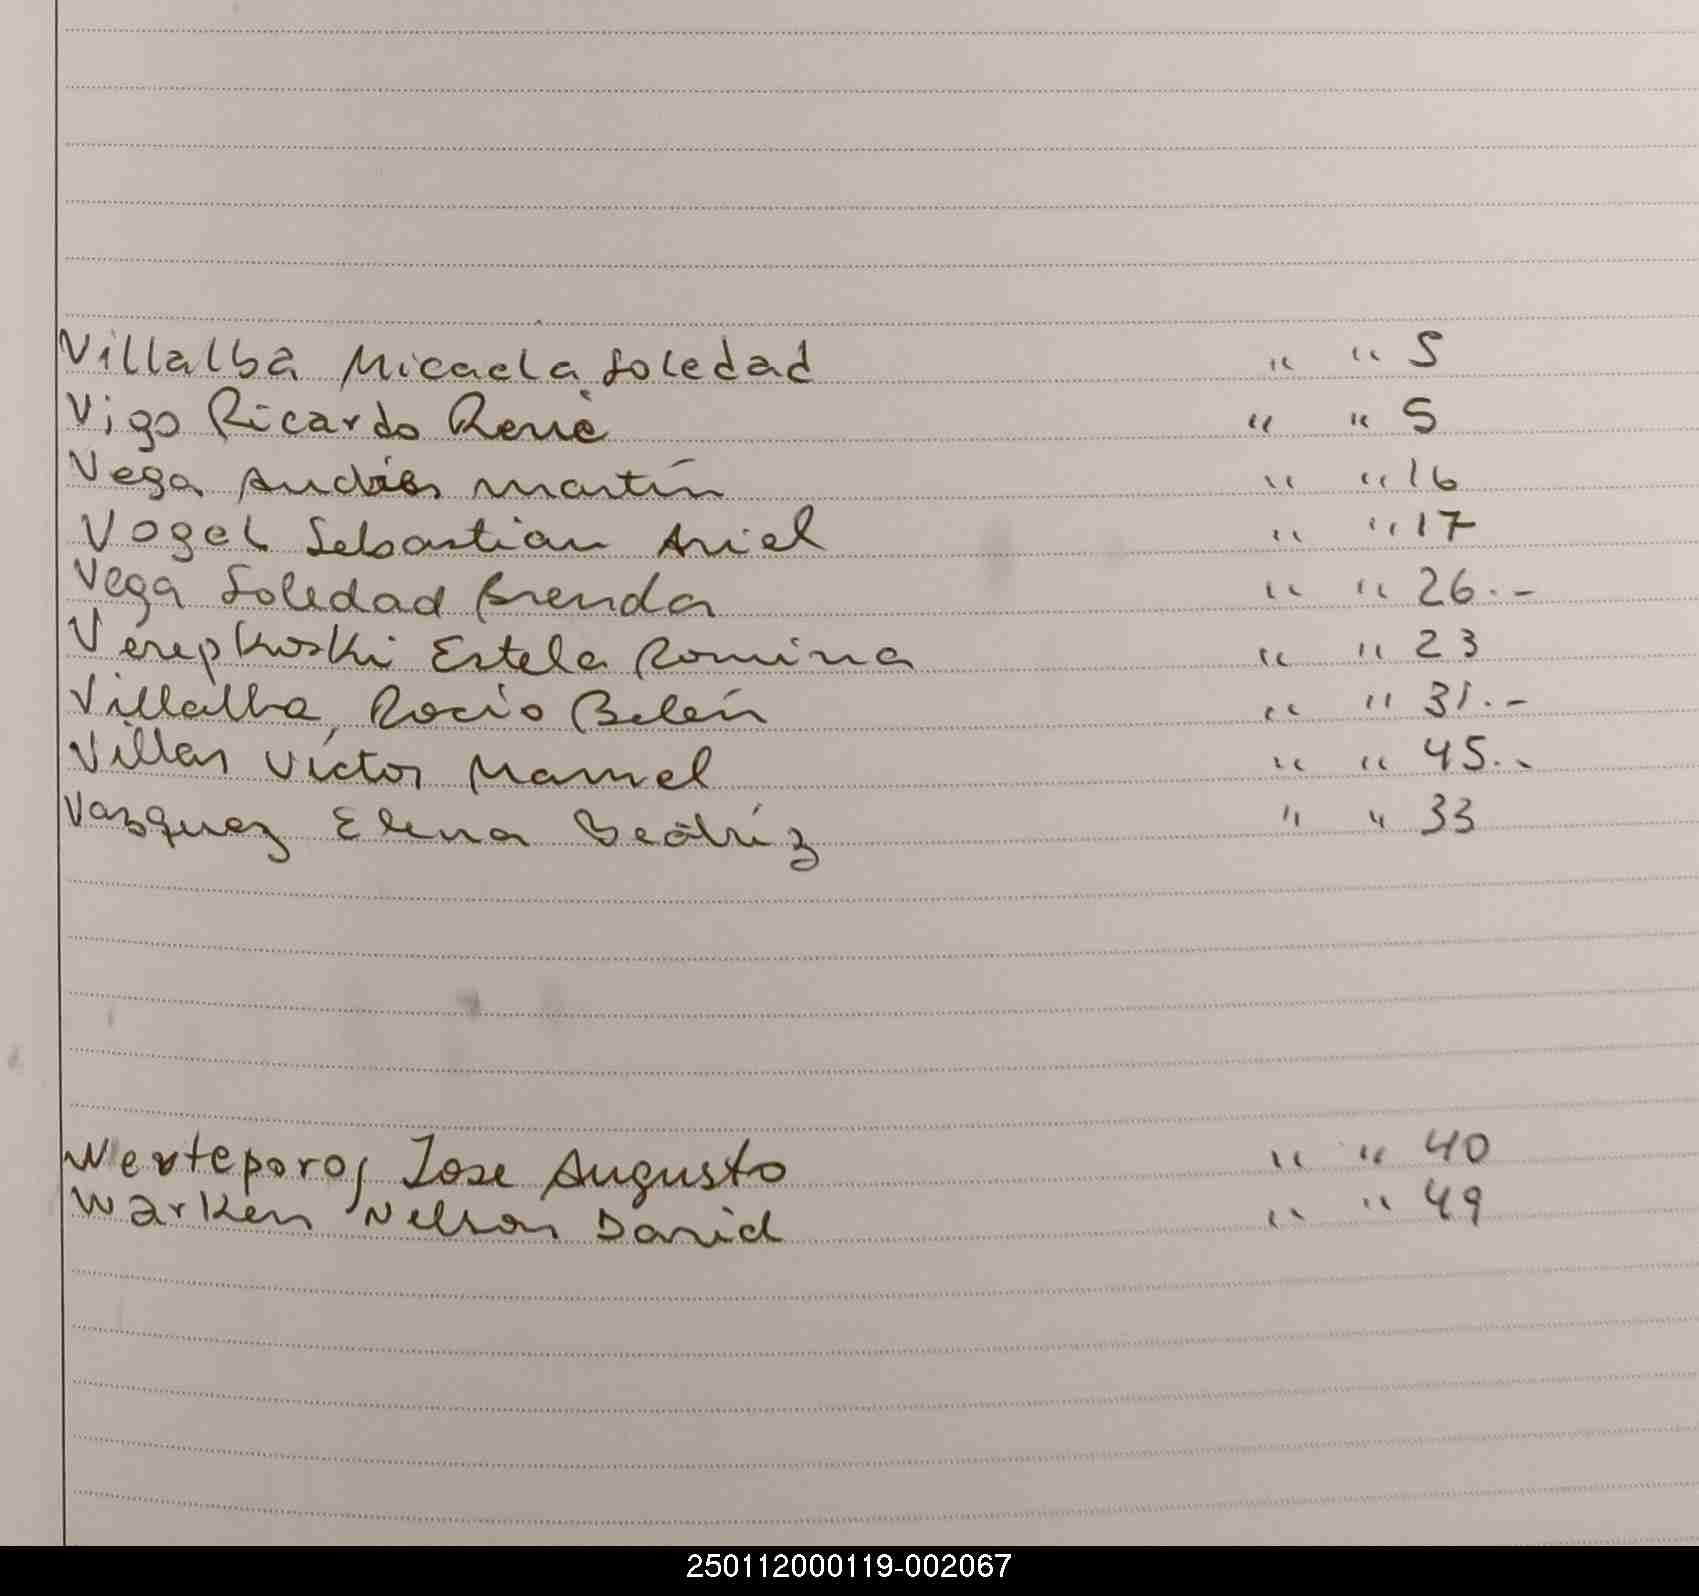 Villalba Micaela Soledad " " 5
Vigo Ricardo René " " 5
Vega Andrés Martín " " 16
Vogel Sebastian Ariel " " 17
Vega Soledad Brenda " " 26.-
Verepkoski Estela Romina " " 23
Villalba, Rocío Belén " " 31.-
Villar Víctor Manuel " " 45.-
Vazquez Elena Beatríz " " 33
Jose Augusto " " 40
Warken Nelson David " " 49
250112000119-002067